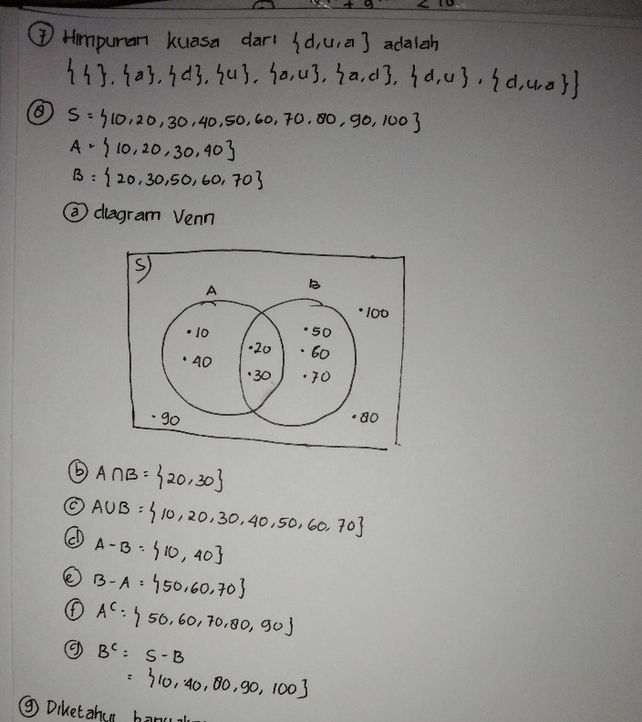 7 Himpunan kuasa dari {d,u,a} adalah
{{}, {a}, {d}, {u}, {a,u}, {a,d}, {d,u}, {d,u,a}}
8 S = {10,20,30,40,50,60,70,80,90,100}
A = {10,20,30,40}
B = {20,30,50,60,70}
a diagram Venn
S)
A B
•100
•10 •50
•20 •60
•40
•30 •70
•90 •80
b A∩B = {20,30}
c A∪B = {10,20,30,40,50,60,70}
d A-B = {10,40}
e B-A = {50,60,70}
f Aᶜ = {50,60,70,80,90}
g Bᶜ = S-B
= {10,40,80,90,100}
9 Diketahui